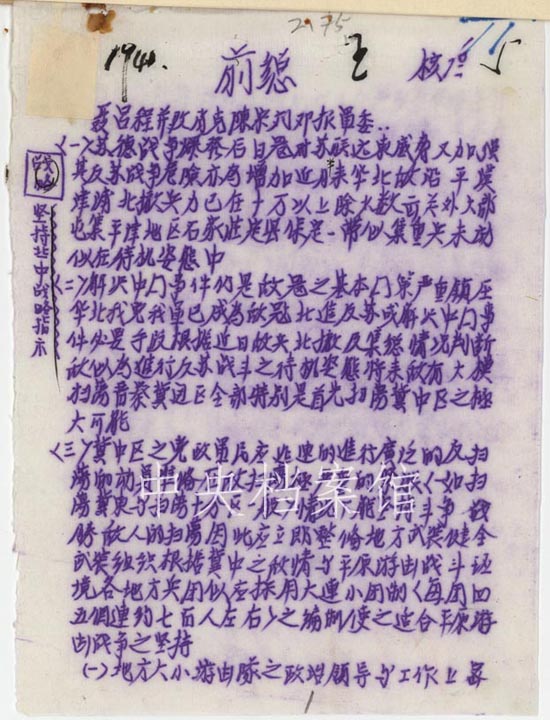 2175
1941.
前總 王 校 5
聂吕程并致肖克陳宋刘邓报軍委:
(一)苏德战争爆發后日寇对苏联远東威脅又加强
其反苏战争危險亦为增加近月来华北敌沿平漢
津浦北撤兵力已在十万以上除大数可关外大部
屯集平津地区石家庄定县保定一帶似集重兵未动
似在待机姿態中
(二)解决中门事件仍是敌寇之基本门策严重鎮压
华北我党我軍已成为敌寇北進反苏或解决中门事
件必要手段根据近日敌兵北撤及集結情况判断
敌似为進行反苏战斗之待机姿態將来敌有大模
扫荡晋察冀边区全部特别是首先扫荡冀中区之極
大可能
(三)冀中区之党政軍民应迅速的進行廣泛的反扫
荡的动員 如扫
荡冀東与扫荡十 斗争战
勝敌人的扫荡因此应立即整偹地方武装健全
武装组织根据冀中之敌情与平原游击战斗环
境各地方兵团似应採用大連小团制(每团四
五個連約七百人左右)之编制使之适合平原游
击战争之坚持
(一)地方大小游击隊之政治領导与工作上每
坚持冀中战略指示
中央档案馆
1